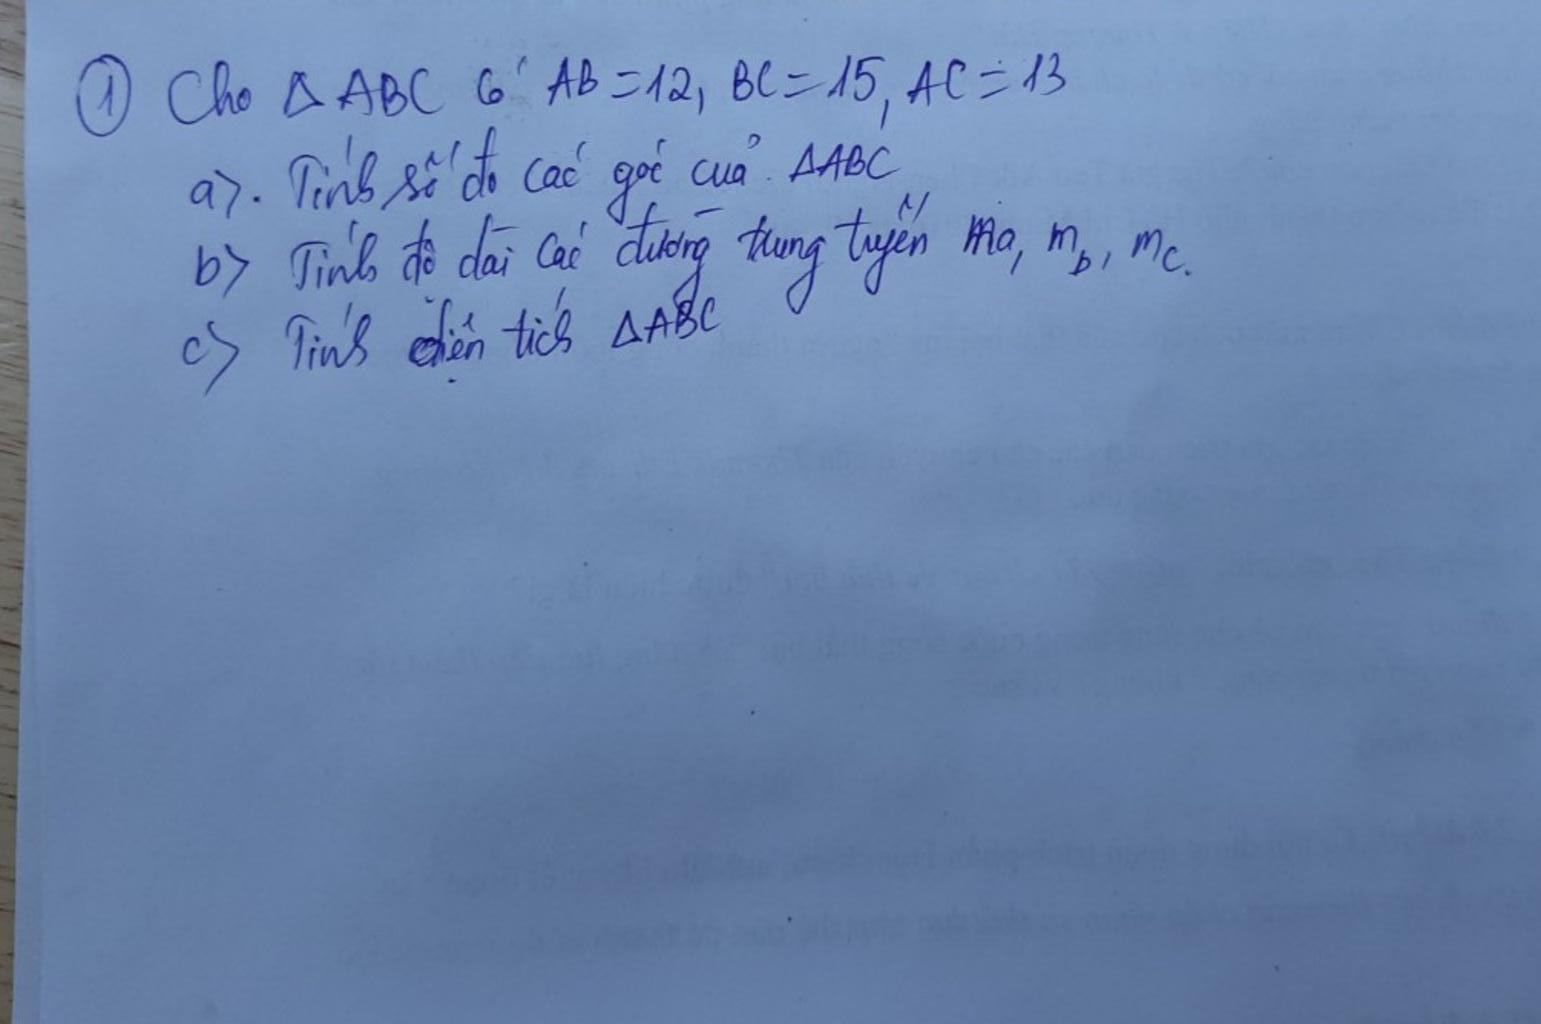 ① Cho △ABC có AB=12, BC=15, AC=13
a). Tính số đo các góc của △ABC
b) Tính độ dài các đường trung tuyến ma, mb, mc.
c) Tính diện tích △ABC